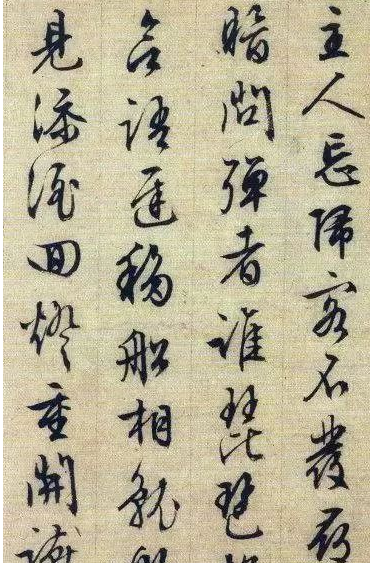 主人忘歸客不發尋
暗問彈者誰琵琶
語遲移船相就
見添酒回燈重開讌